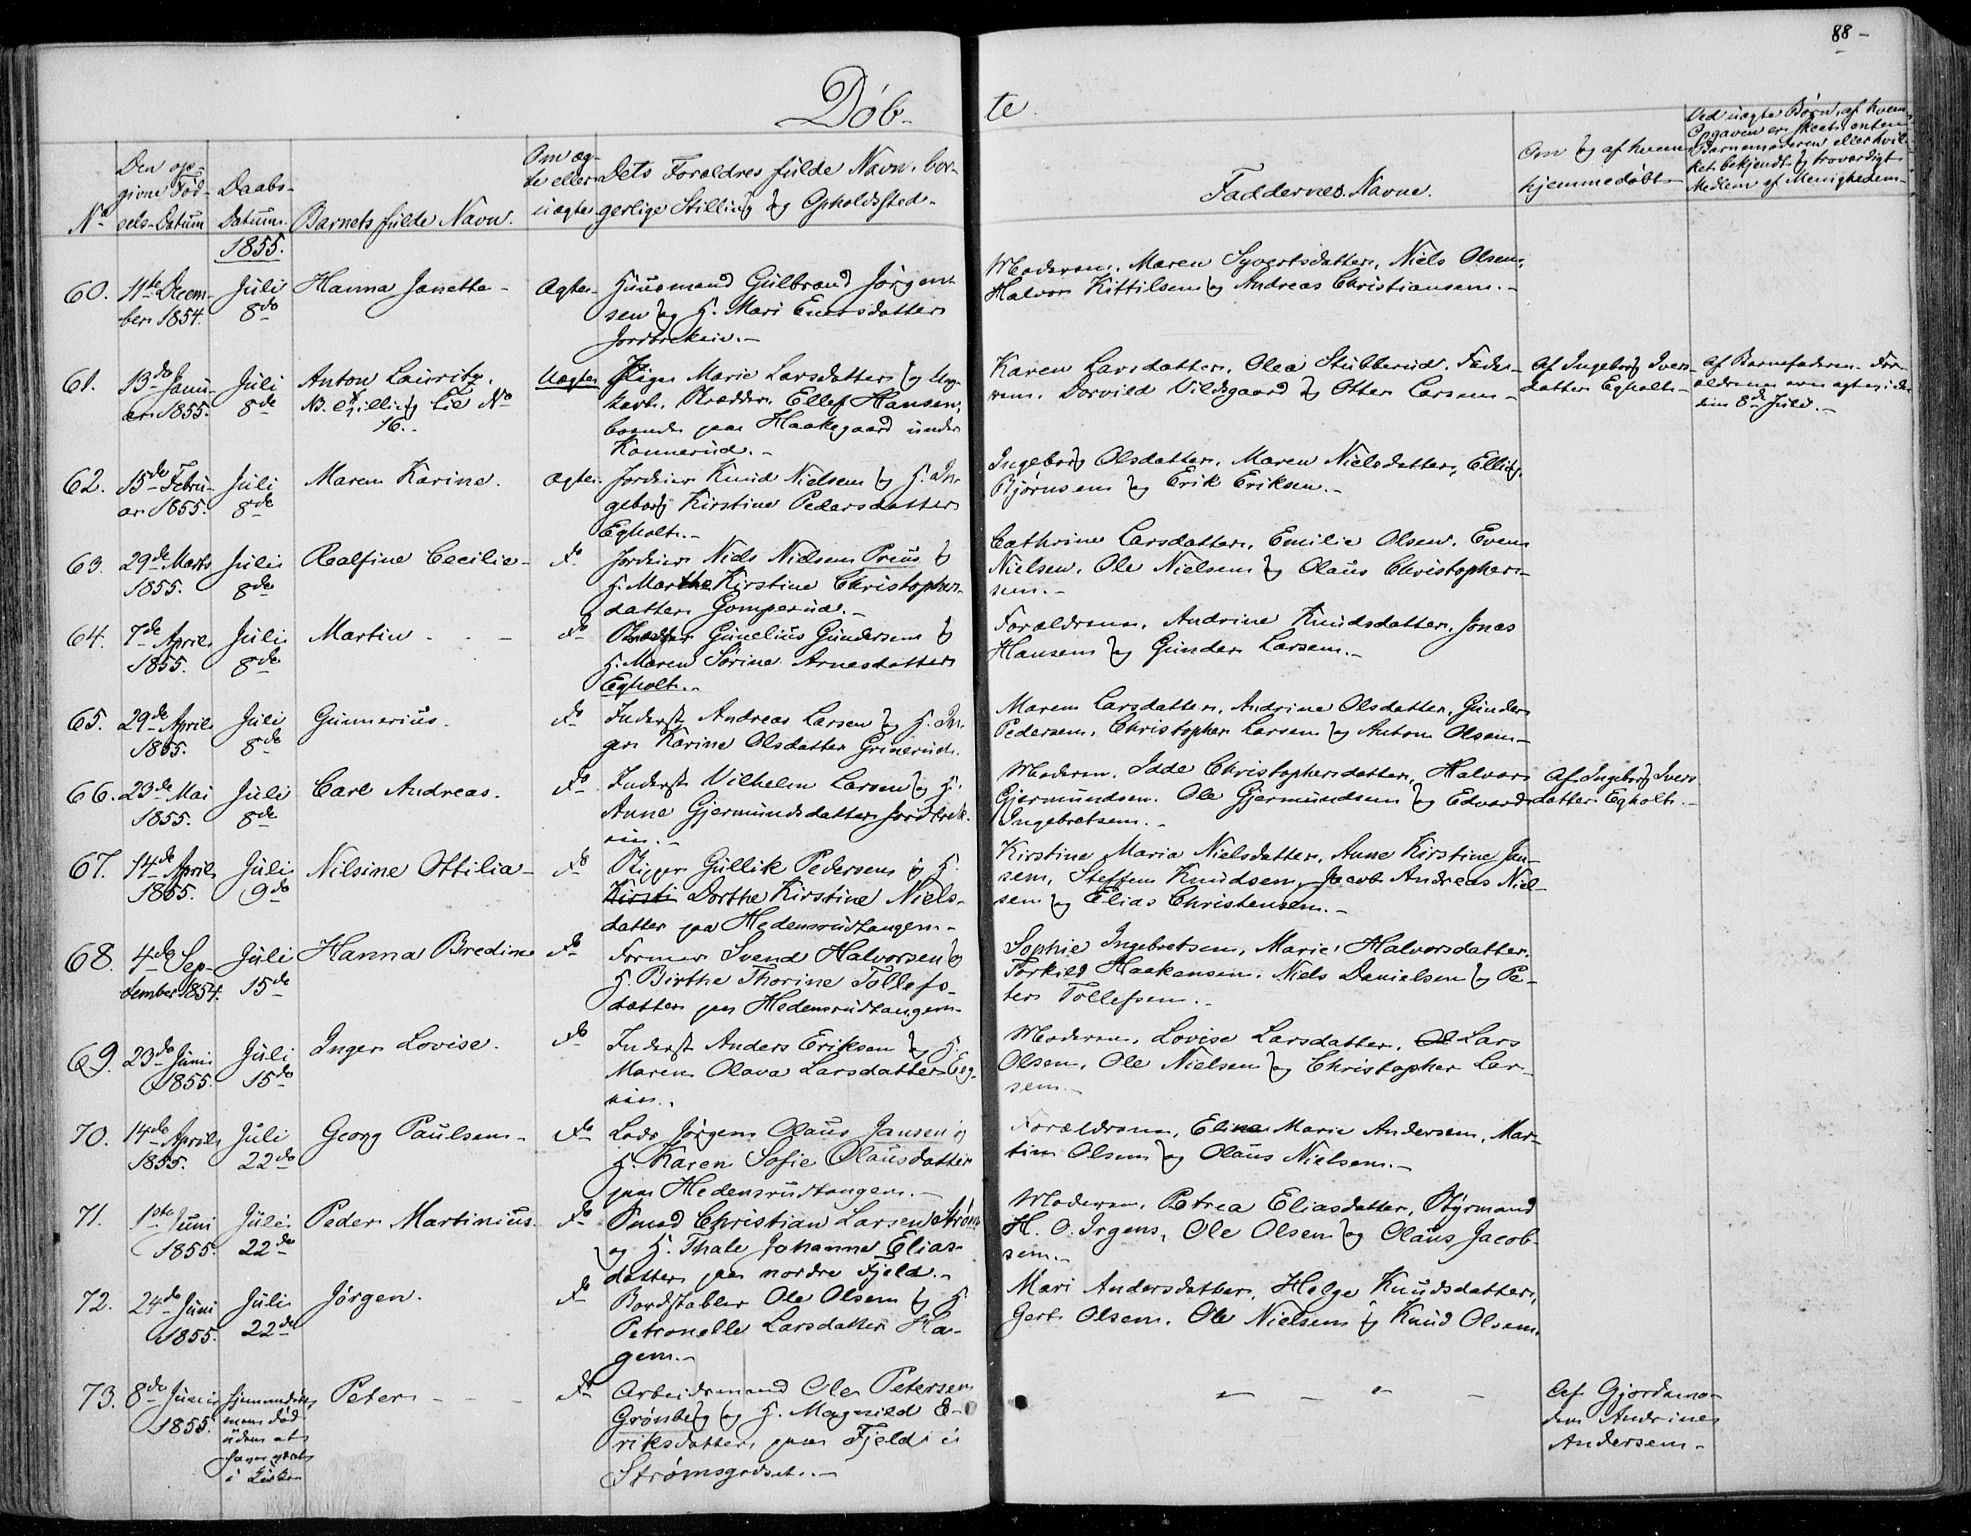 88 -
Döb-
te
Den op-
givne Föd-
sels-Datum
No
Daabs-
Datum
Barnets fulde Navn.
Om æg-
te eller
uægte
Dets Forældres fulde Navn, bor-
gerlige Stilling og Opholdssted.
Faddernes Navne.
Om og af hvem
hjemmedöbt
Ved uægte Börn, af hvem
Opgaven er skeet, enten
Barnemoderen eller hvil-
ket bekjendt og troværdigt
Medlem af Menigheden
1855.
60. 11te Decem-
ber 1854.
Juli
8de
Hanna Janette -
Ægte
Huusmand Gulbrand Jörgen-
sen og H. Mari Enersdatter
Jordbrekvin. -
Moderen, Maren Syvertsdatter, Niels Olsen,
Halvor Kittilsen og Andreas Christiansen. -
61. 13de Janu-
ar 1855.
Juli
8de
Anton Lauritz.
NB. Tvilling til No
16.
Uægte
Pige Marie Larsdatter og Ung-
karl, Skrædder Ellef Hansen,
boende paa Haakegaard under
Konnerud. -
Karen Larsdatter, Olea Stubberud, Fade-
ren, Dorvild Vildsgaard og Otter Larsen -
Af Ingeborg Ivers-
datter Egholt -
Af Barnefaderen. For-
ældrene ere ægteviede
den 8de Juli. -
62. 15de Febru-
ar 1855.
Juli
8de
Maren Karine.
Ægte
Jordeier Knud Nielsen og H. In-
geborg Kirstine Pedersdatter
Egholt. -
Ingeborg Olsdatter, Maren Nielsdatter, Elling
Björnsen og Erik Eriksen. -
63. 29de Marts
1855.
Juli
8de
Ralfine Cecilie -
do
Jordeier Niels Nielsen Preus og
H. Marthe Kirstine Christopher-
datter Gomperud. -
Cathrine Larsdatter, Emilie Olsen, Even
Nielsen, Ole Nielsen og Olaus Christopher-
sen. -
64. 7de April
1855.
Juli
8de
Martin - -
do
Gunelius Gundersen og
H. Maren Sörine Arnesdatter
Egholt. -
Forældrene, Andrine Knudsdatter, Jonas
Hansen og Gunder Larsen. -
65. 29de April
1855.
Juli
8de
Gunnerius -
do
Inderst Andreas Larsen og H. In-
ger Karine Olsdatter Grinerud.
Maren Larsdatter, Andrine Olsdatter, Gunder
Pedersen, Christopher Larsen og Anton Olsen -
66. 23de Mai
1855.
Juli
8de
Carl Andreas.
do
Inderst Vilhelm Larsen og H.
Anne Gjermundsdatter Jordbrek-
vin. -
Moderen, Idde Christophersdatter, Halvor
Gjermundsen, Ole Gjermundsen og Edvard
Ingebretsen. -
Af Ingeborg Ivers-
datter Egholt. -
67. 14de April
1855.
Juli
9de
Nilsine Ottilia -
do
Skipper Gullik Pedersen og H.
Kirsti Dorthe Kirstine Niels-
datter paa Hedensrudtangen -
Kirstine Maria Nielsdatter, Anne Kirstine Jan-
sen, Steffen Knudsen, Jacob Andreas Niel-
sen og Elias Christensen. -
68. 4de Sep-
tember 1854.
Juli
15de
Hanna Bredine
do
Former Svend Halvorsen og
H. Birthe Thorine Tollefs-
datter paa Hedensrudtangen -
Sophie Ingebretsen, Marie Halvorsdatter,
Torkild Haakensen, Niels Danielsen og Pe-
ter Tollefsen. -
69. 23de Juni
1855.
Juli
15de
Inger Lovise.
do
Inderst Anders Eriksen og H.
Maren Olava Larsdatter Eeg-
Moderen, Lovise Larsdatter, Ol Lars
Olsen, Ole Nielsen og Christopher Lar-
sen. -
70. 14de April
1855.
Juli
22de
Georg Paulsen -
do
Lods Jörgen Olaus Jansen og
H. Karen Sofie Olausdatter
paa Hedensrudtangen. -
Forældrene, Eline Marie Andersen, Mar-
tin Olsen og Olaus Nielsen. -
71. 1ste Juni
1855.
Juli
22de
Peder Martinius.
do
Smed Christian Larsen Ström
og H. Thale Johanne Elias-
datter paa nordre Fjeld. -
Moderen, Petrea Eliasdatter, Styrmand
H. O. Irgens, Ole Olsen og Olaus Jacob-
sen. -
72. 24de Juni
1855.
Juli
22de
Jörgen.
do
Bordstabler Ole Olsen og H.
Petronelle Larsdatter Ha-
gen. -
Mari Andersdatter, Helge Knudsdatter,
Gert Olsen, Ole Nielsen og Knud Olsen.
73. 8de Juni
1855.
hjemmedöbt,
men död
uden at
have været
i Kirken
Peter - -
do
Arbeidsmand Ole Petersen
Grönberg og H. Magnild E-
riksdatter paa Fjeld i
Strömsgodset. -
Af Gjordemo-
deren Andrine
Andersen -